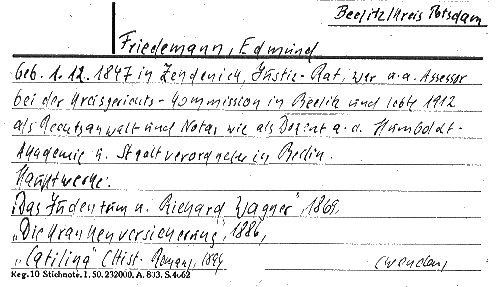 Beelitz/Kreis Potsdam
Friedemann, Edmund
Geb. 1.12.1847 in Zendenich, Justiz-Rat, war u.a. Assessor
bei der Kreisgerichts-Kommission in Beelitz und lebte 1912
als Rechtsanwalt und Notar wie als Dozent a.d. Humboldt-
Akademie u. Stadtverordneter in Berlin.
Hauptwerke:
„Das Judentum u. Richard Wagner", 1869,
„Die Krankenversicherung", 1886,
„Catilina" (Hist. Roman), 1894
(wenden)
Reg. 10 Stichnote. 1. 50. 232000. A. 803. S. 4.62